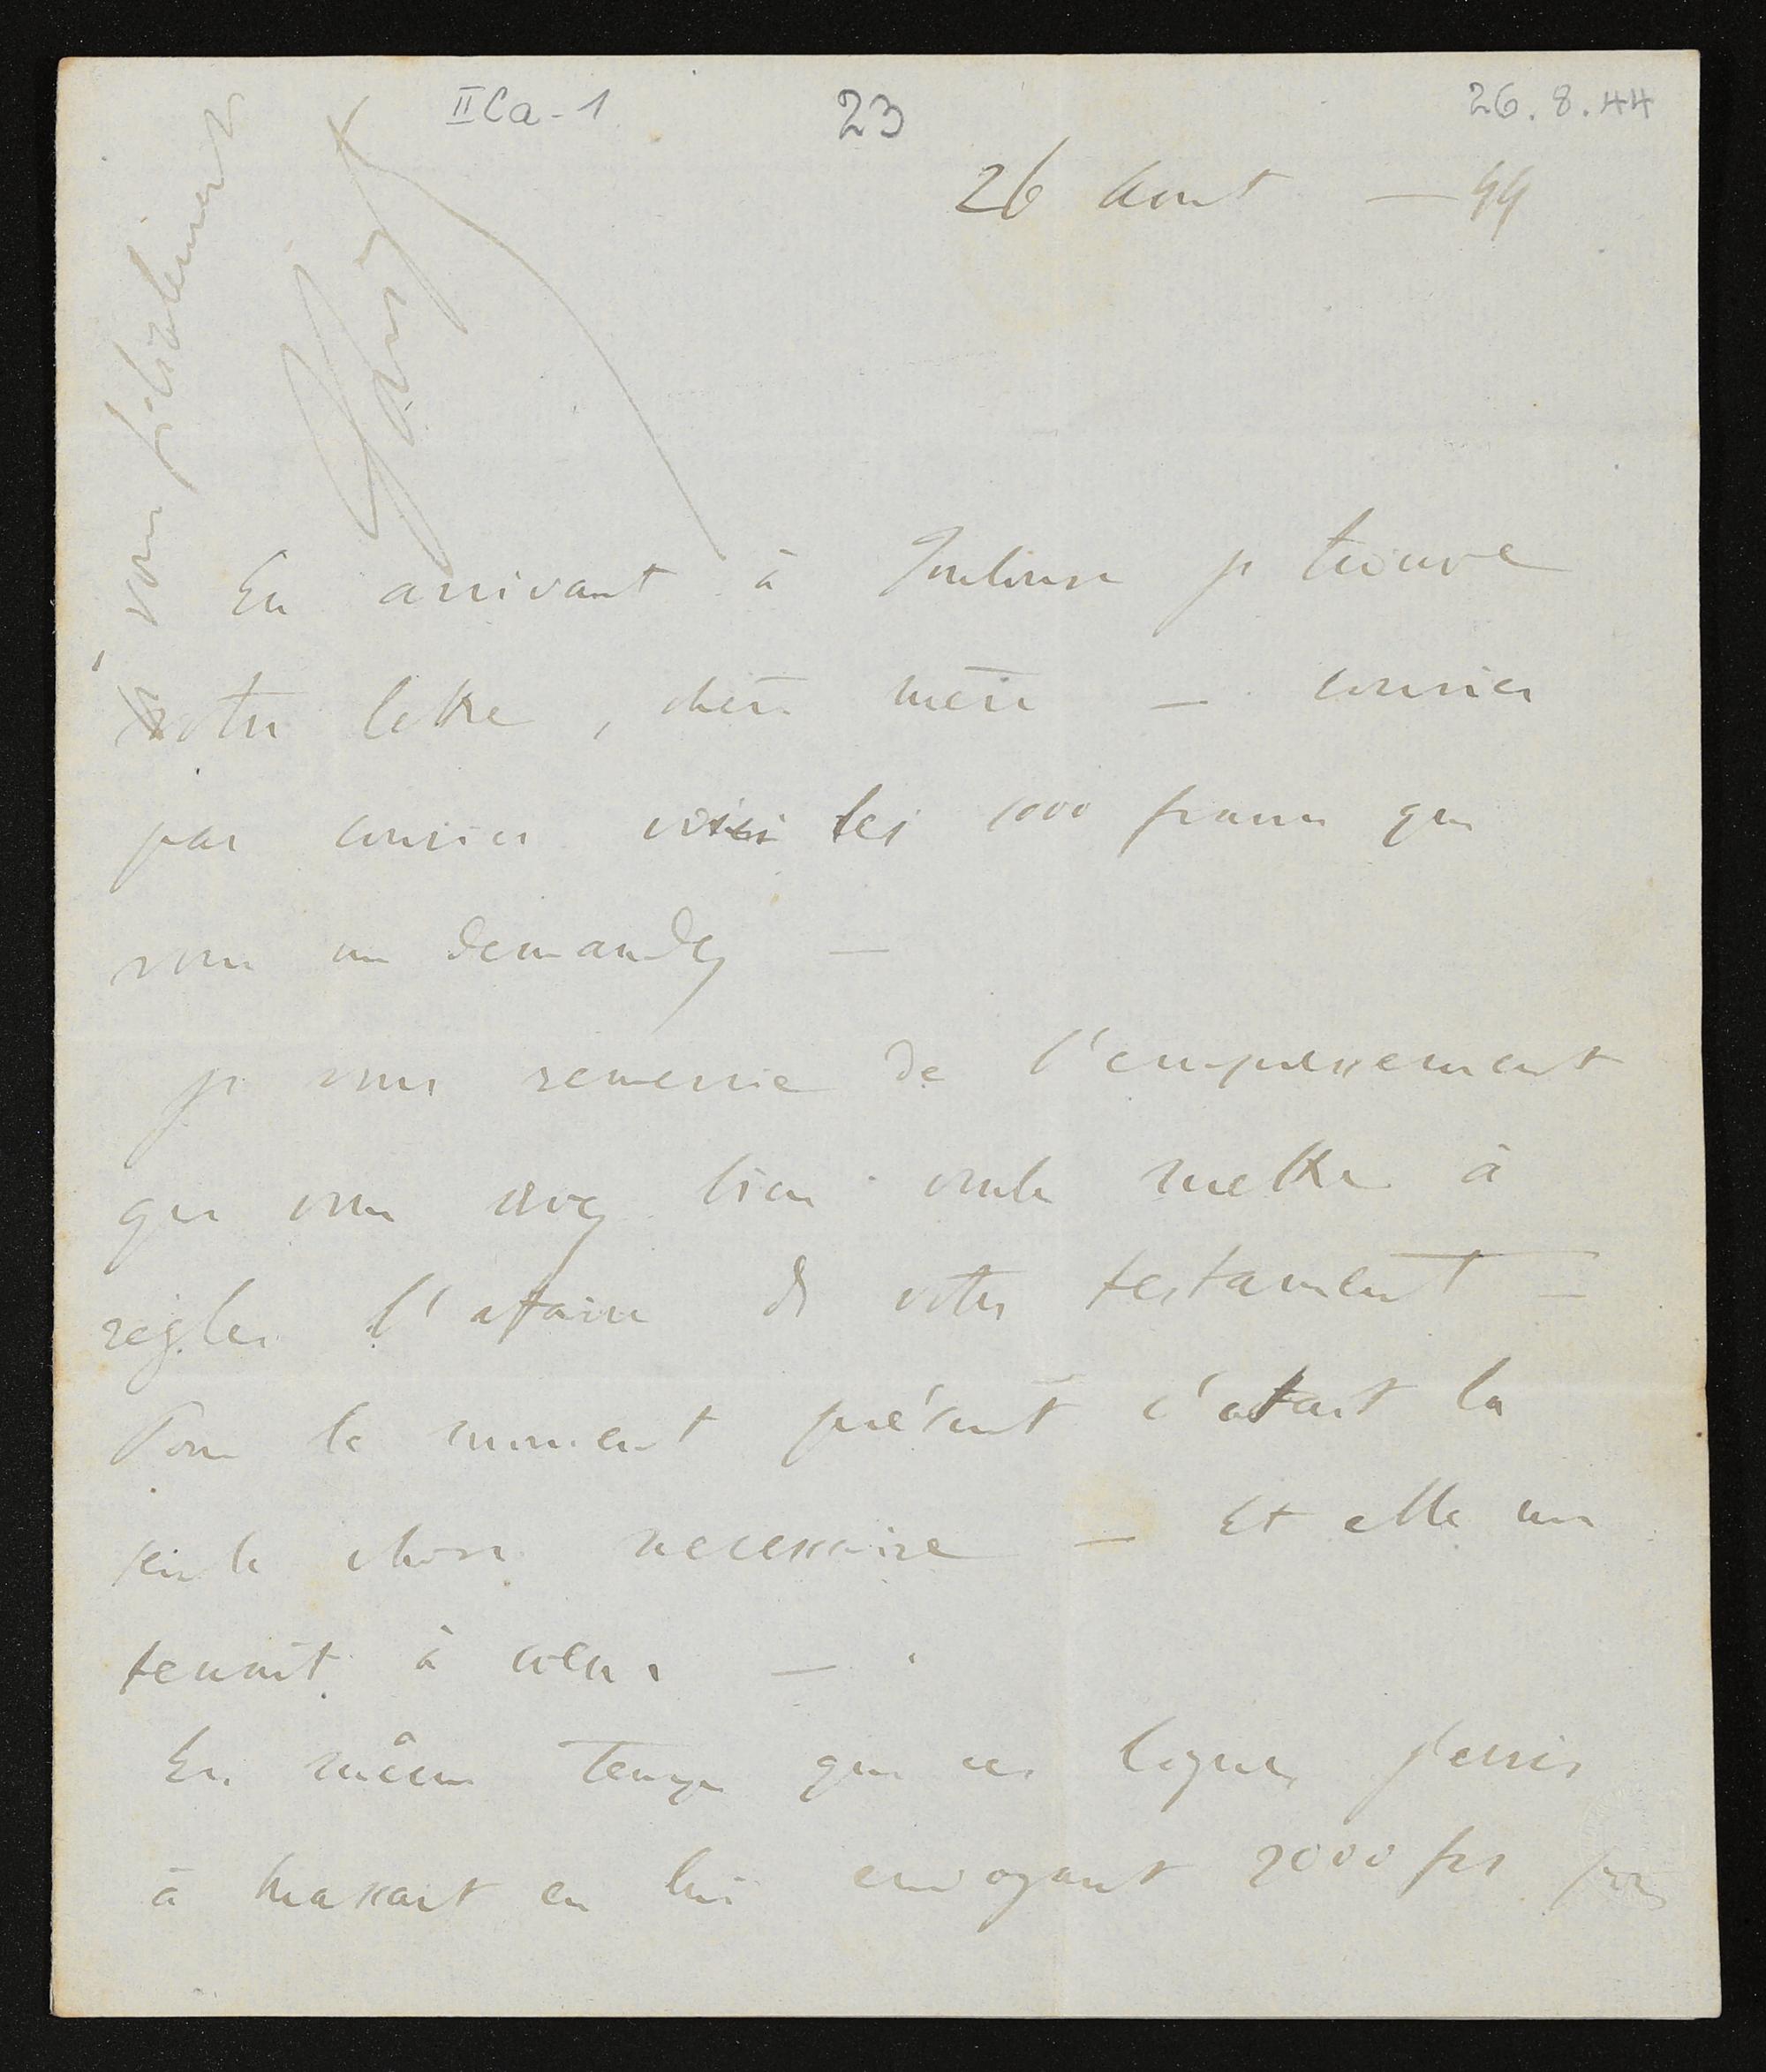 IICa-1 23 26.8.44
26 Aout — 44
En arrivant à Toulouse je trouve
votre lettre, chère mère — courier
par courier voici les 1000 francs que
vous me demandez —
je vous remercie de l'empressement
que vous avez bien voulu mettre à
régler l'affaire de votre testament —
Pour le moment présent c'etait la
seule chose necessaire — Et elle me
tenait à cœur. —
En même temps que ces lignes j'ecris
à Massart en lui envoyant 2000 frs
à vous filialement